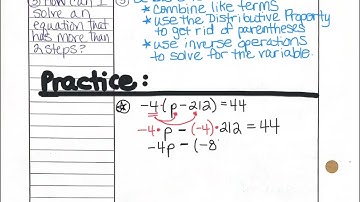 ③ How can I
solve an
equation that
has more than
2 steps?
* combine like terms
* use the Distributive Property
to get rid of parentheses
* use inverse operations
to solve for the variable.
Practice:
-4(p-212)=44
-4•p - (-4)•212 = 44
-4p - (-8